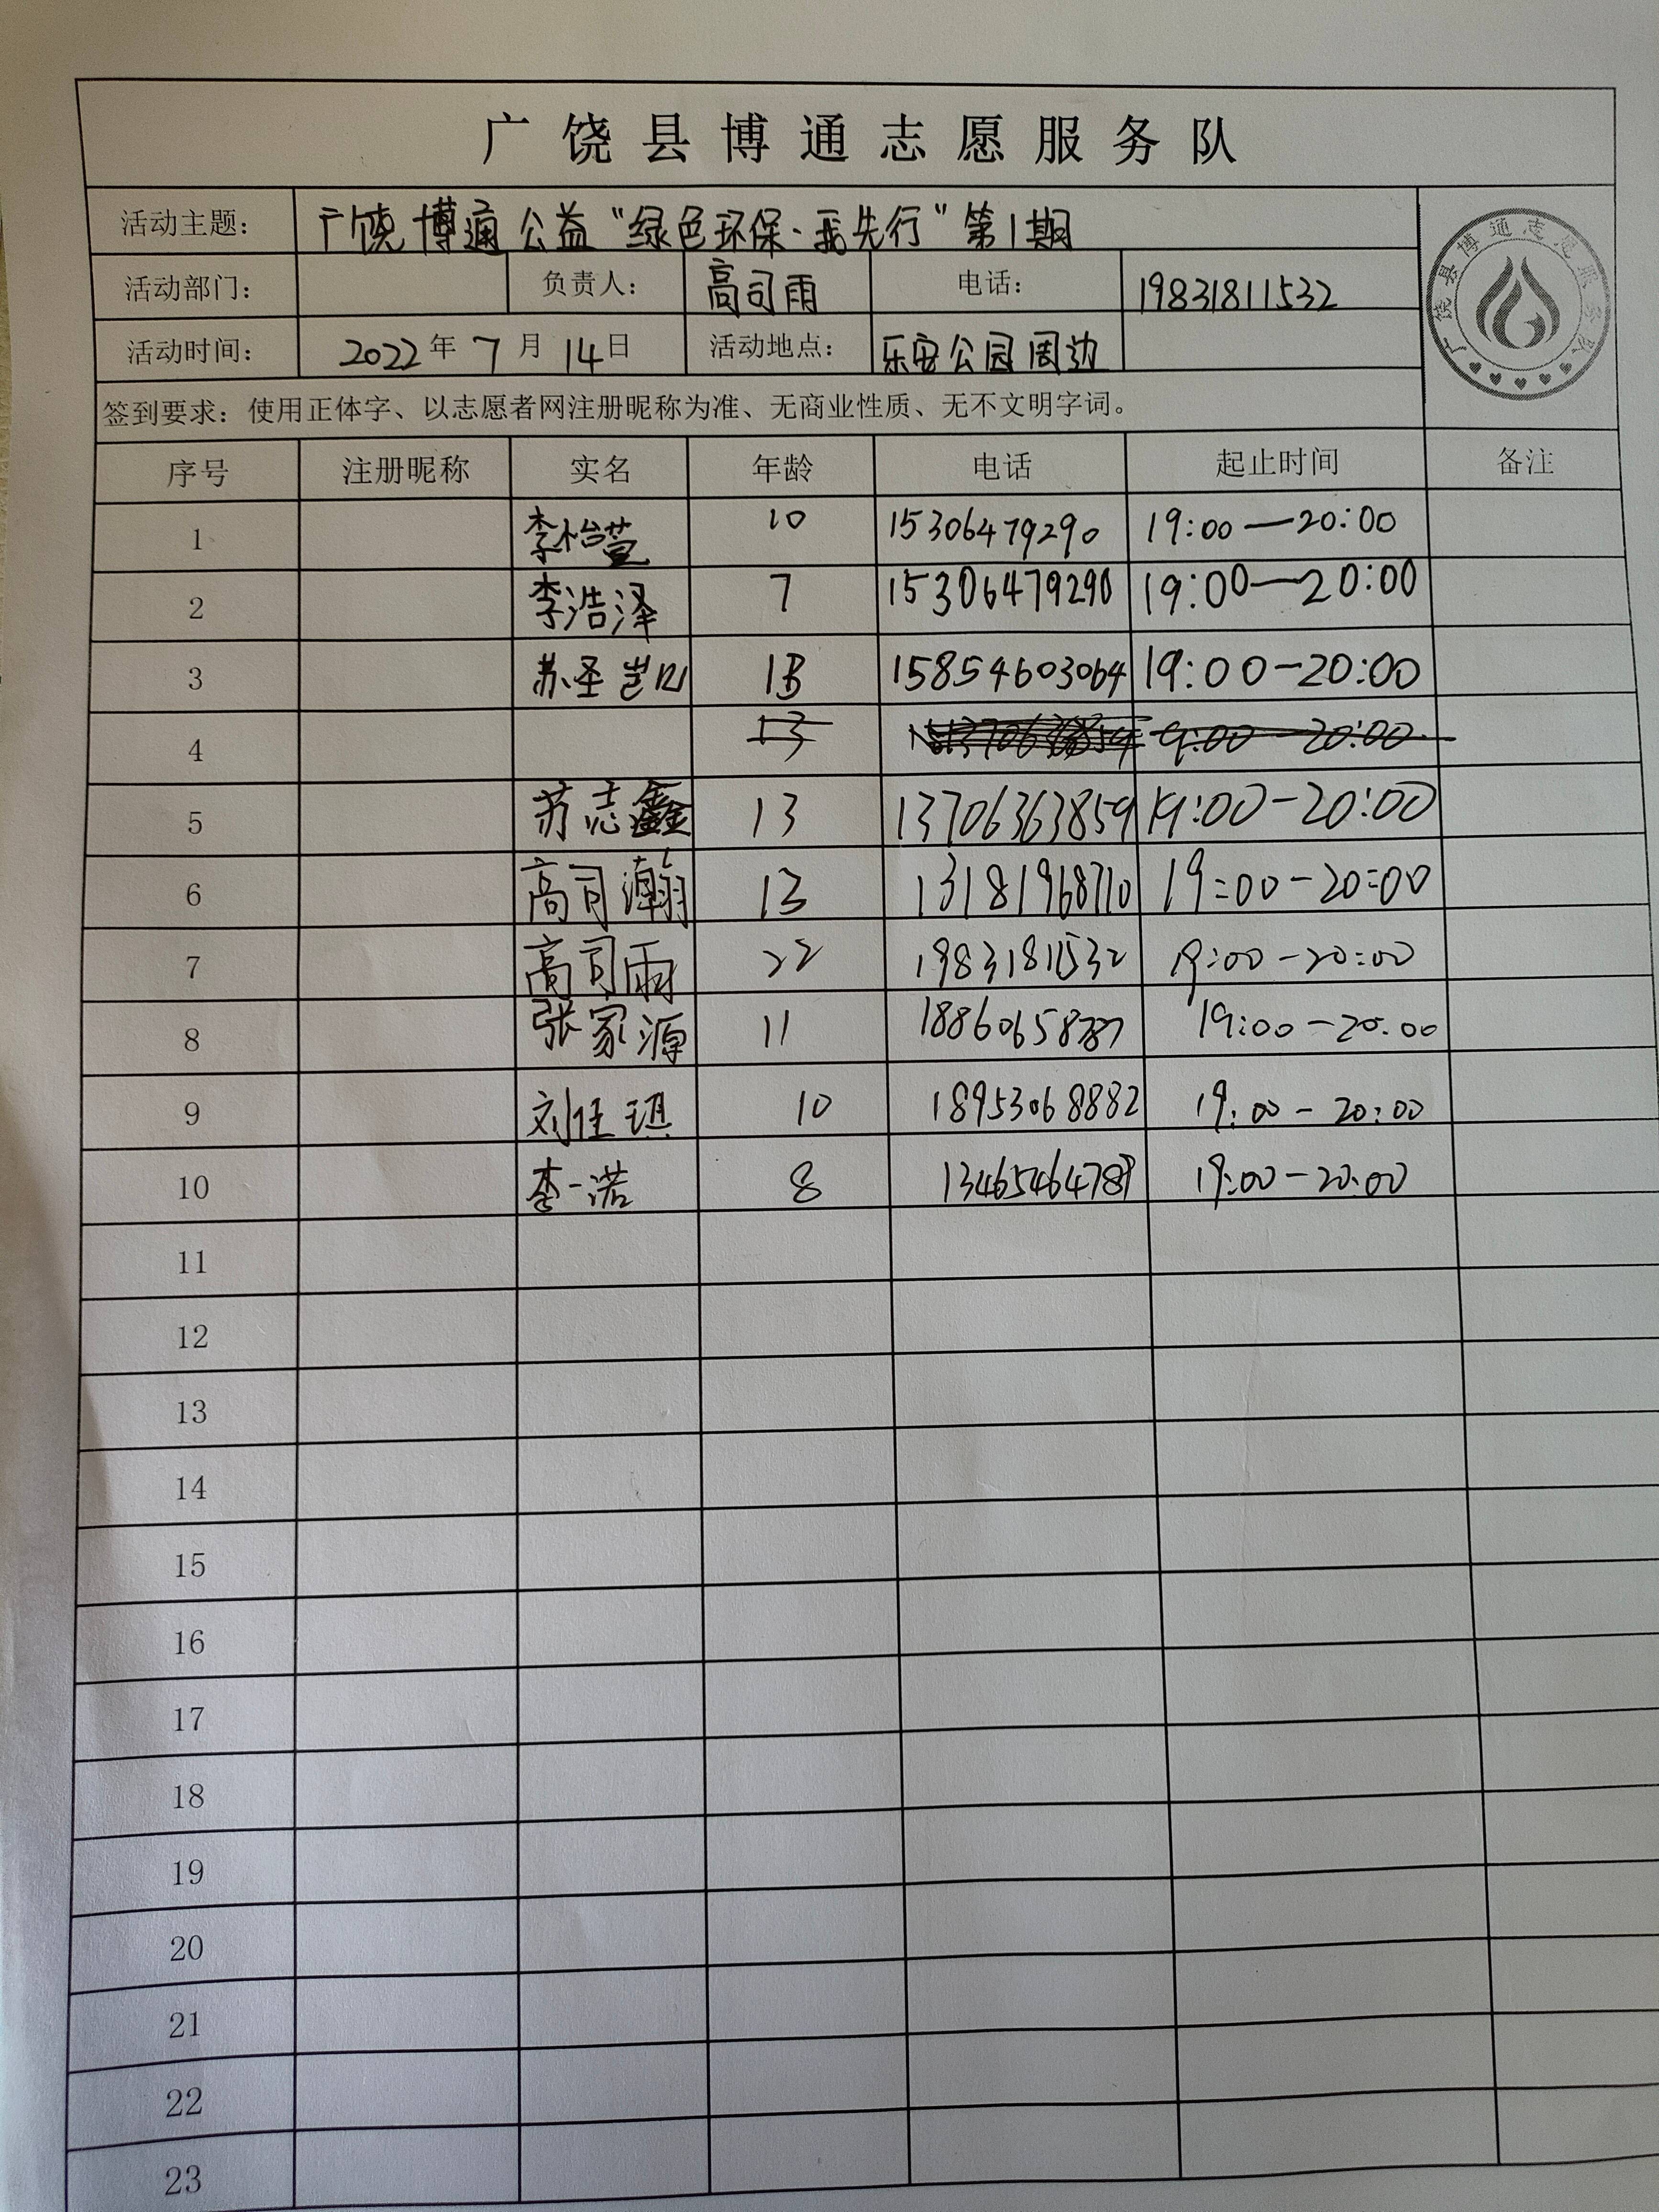 广饶县博通志愿服务队
活动主题： 广饶博通公益“绿色环保·我先行”第1期
广饶县博通志愿服务队
活动部门： 负责人： 高司雨 电话： 19831811532
活动时间： 2022年7月14日 活动地点： 乐安公园周边
签到要求：使用正体字、以志愿者网注册昵称为准、无商业性质、无不文明字词。
序号 注册昵称 实名 年龄 电话 起止时间 备注
1 李怡萱 10 15306479290 19:00—20:00
2 李浩泽 7 15306479290 19:00—20:00
3 苏圣 13 15854603064 19:00-20:00
4 13 9:00-20:00
5 苏志鑫 13 13706363859 19:00-20:00
6 高司瀚 13 13181968710 19:00-20:00
7 高司雨 22 19831811532 19:00-20:00
8 张家源 11 19:00-20:00
9 刘佳琪 10 18953068882 19:00-20:00
10 李一诺 8 19:00-20:00
11
12
13
14
15
16
17
18
19
20
21
22
23